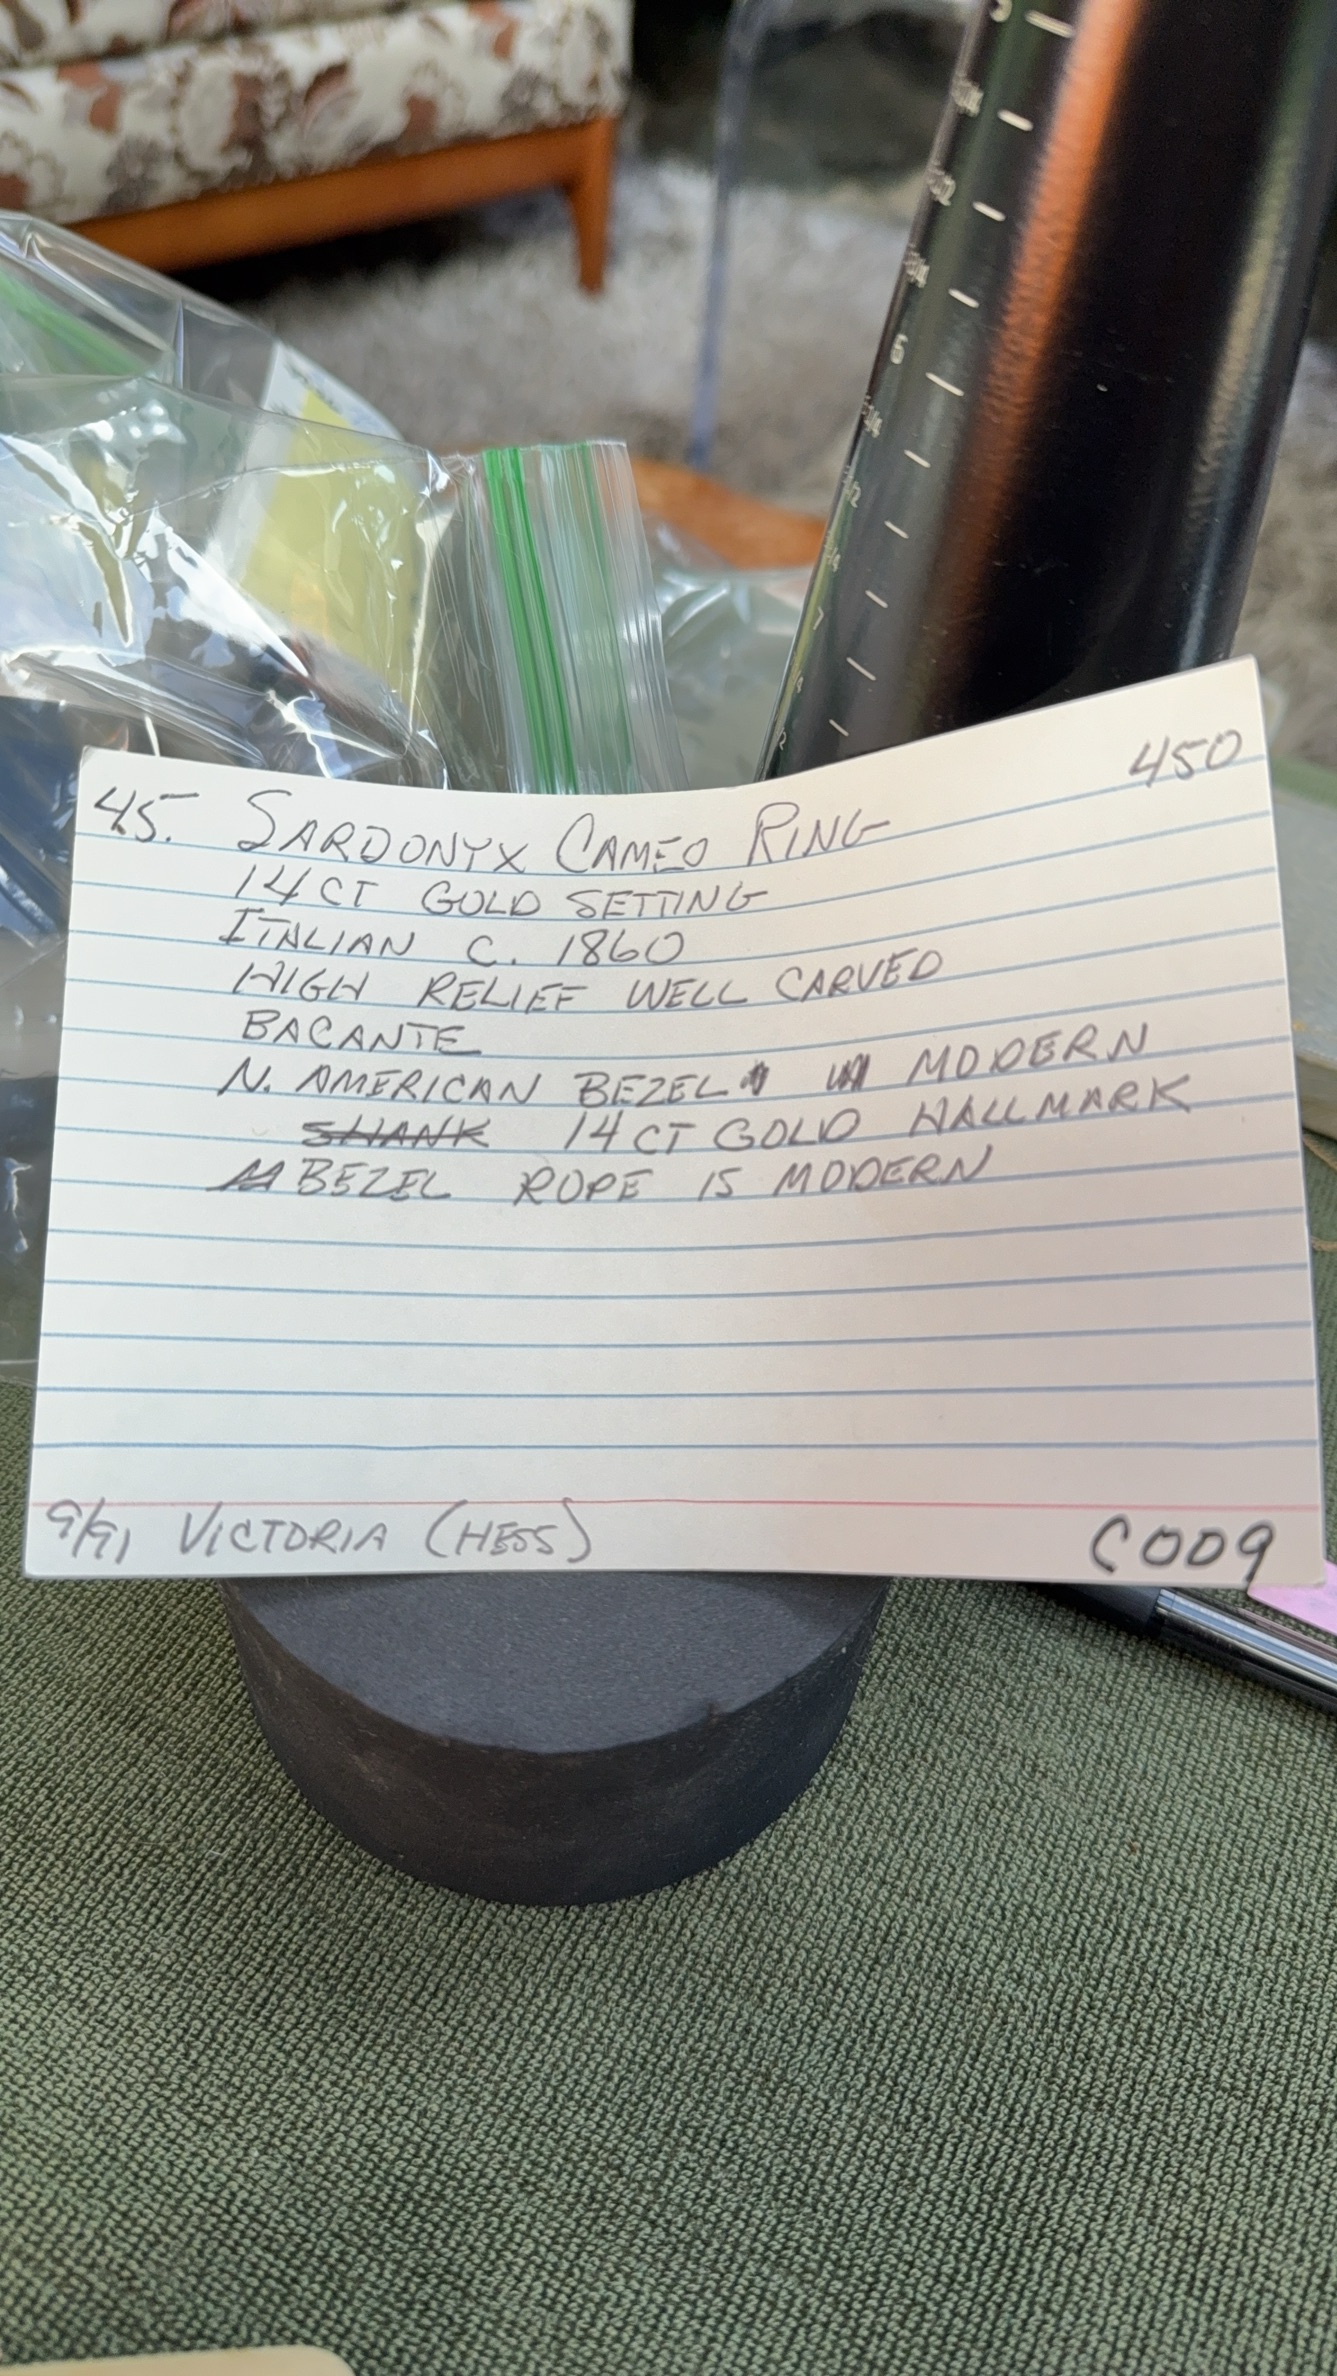 6
7
450
45. SARDONYX CAMEO RING
14 CT GOLD SETTING
ITALIAN C. 1860
HIGH RELIEF WELL CARVED
BACANTE
N. AMERICAN BEZEL MODERN
SHANK 14 CT GOLD HALLMARK
BEZEL ROPE IS MODERN
9/91 VICTORIA (HESS)
C009